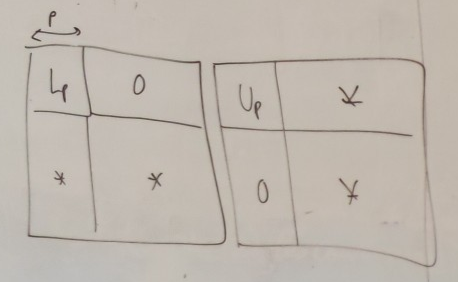 P
Lp 0 Up *
* * 0 *